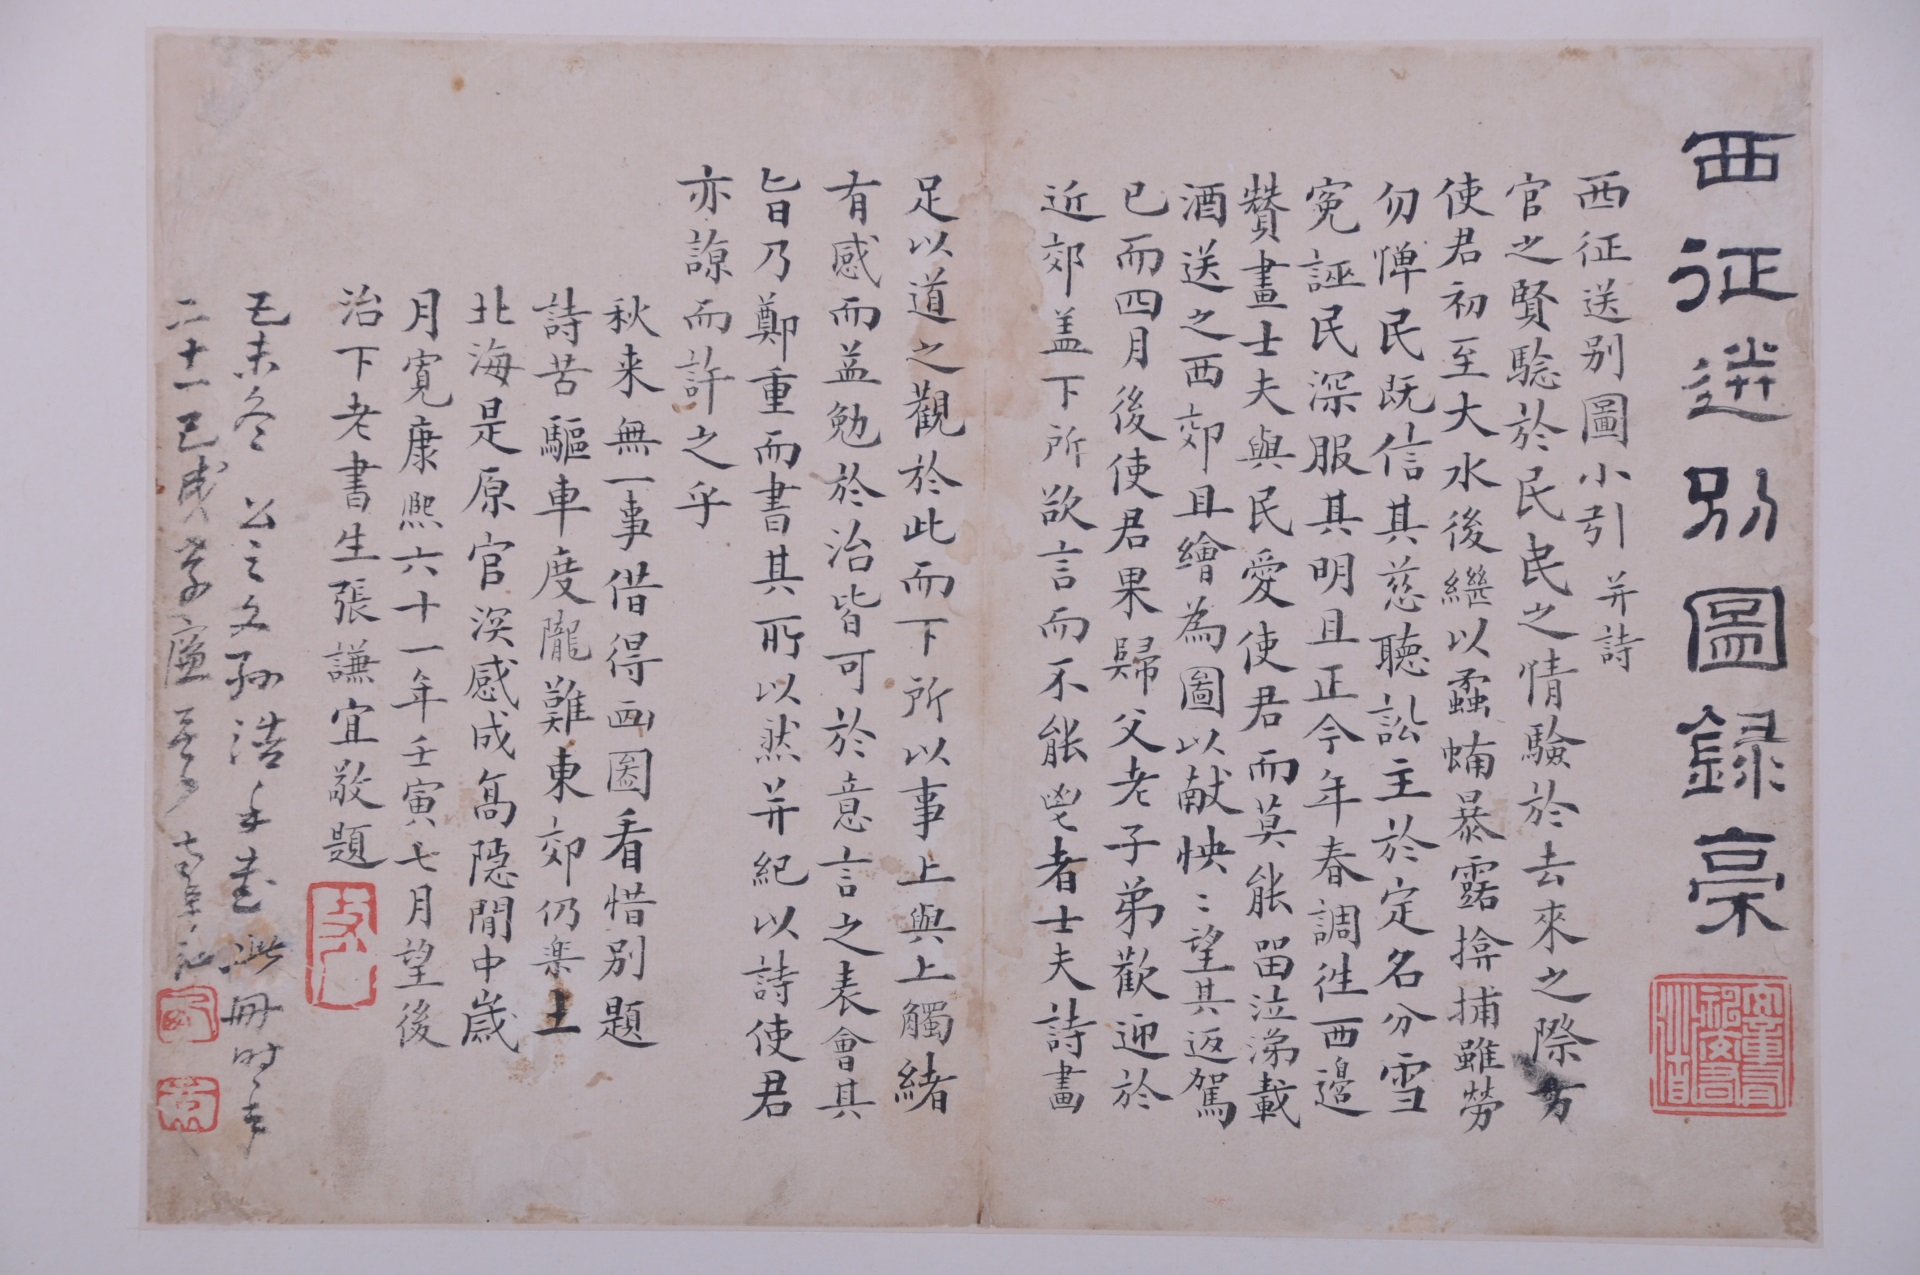 西征送別圖錄稾
西征送别圖小引 并詩
官之賢騐於民民之情驗於去來之際方
使君初至大水後繼以蝥蝻暴露揜捕雖勞
勿憚民既信其慈聽訟主於定名分雪
寃誣民深服其明且正今年春調徃西邊
賛畫士夫與民愛使君而莫能畱泣涕載
酒送之西郊且繪為圖以献怏〻望其返駕
已而四月後使君果歸父老子弟歡迎於
近郊盖下所欲言而不能
者士夫詩畫
足以道之觀於此而下所以事上與上觸緒
有感而益勉於治皆可於意言之表會其
旨乃鄭重而書其所以然并紀以詩使君
亦諒而許之乎
秋来無一事借得画圖看惜别題
詩苦驅車度隴難東郊仍樂土
北海是原官渙感成高隐閒中歲
月寛康熙六十一年壬寅七月望後
治下老書生張謙宜敬題
己未冬 公之文孫浩手畫此冊時年
二十一